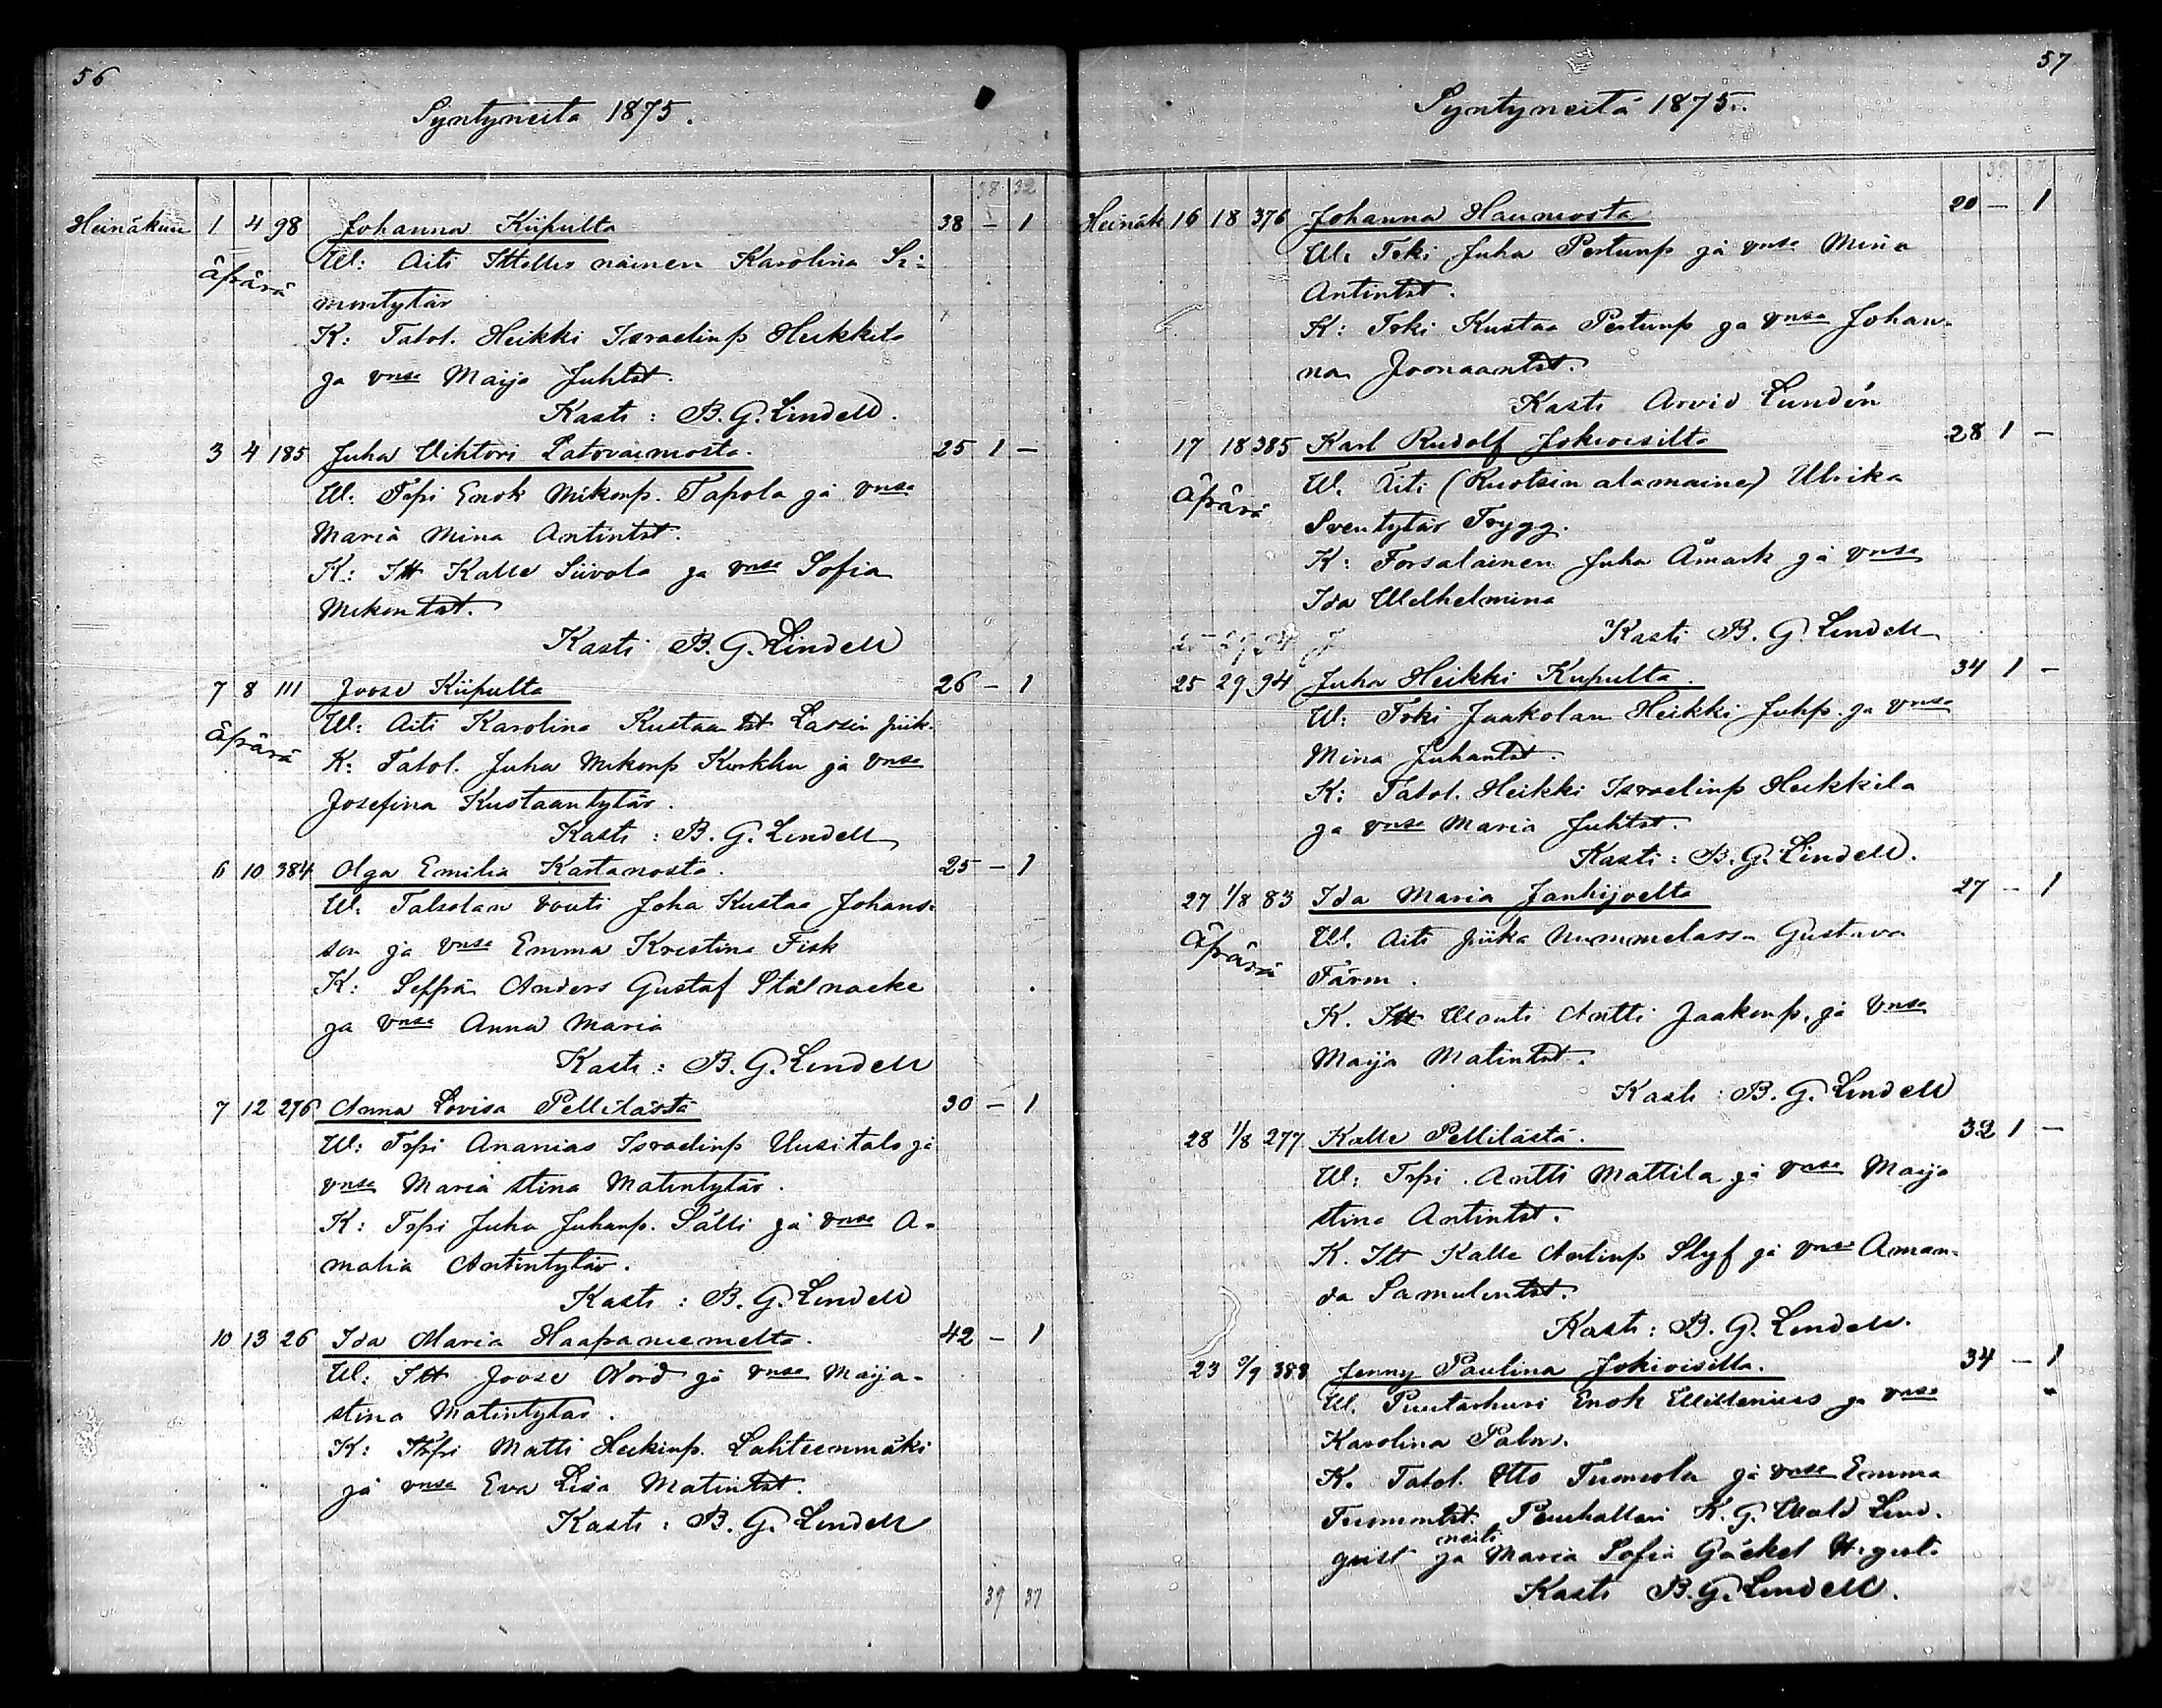 56
Syntyneitä 1875.
38 32
Heinäkuu 1 4 98 Johanna Kiipulta 38 – 1
Äpärä W: Äiti Ittellis nainen Karolina Si-
montytär
K: Talol. Heikki Israelinp Heikkilä
ja vnsa Maija Juhtst.
Kasti: B. G. Lindell.
3 4 185 Juha Vihtori Latovaimosta. 25 1 –
W. Trpi Enok Mikonp. Tapola ja vnsa
Maria Mina Antintst.
K: Itt Kalle Siivola ja vnsa Sofia
Mikontst.
Kasti B. G. Lindell
7 8 111 Joose Kiipulta 26 – 1
Äpärä W: Äiti Karolina Kustaantst Lassin piik.
K: Talol. Juha Mikonp Kurkku ja vnsa
Josefina Kustaantytär.
Kasti: B. G. Lindell
6 10 384 Olga Emilia Kartanosta. 25 – 1
W. Talvolan vouti Joha Kustaa Johans-
son ja vnsa Emma Kristina Fisk
K: Seppä Anders Gustaf Stålnacke
ja vnsa Anna Maria
Kasti: B. G. Lindell
7 12 276 Anna Lovisa Pellilästä 30 – 1
W: Trpi Ananias Israelinp Uusitalo ja
vnsa Maria Stina Matintytär.
K: Trpi Juha Juhanp. Sälli ja vnsa A-
malia Antintytär.
Kasti: B. G. Lindell
10 13 26 Ida Maria Haapaniemeltä. 42 – 1
W: Itt Joose Nord ja vnsa Maija-
stina Matintytär.
K: Trpi Matti Heikinp. Lähteenmäki
ja vnsa Eva Lisa Matintst.
Kasti: B. G. Lindell
39 37
57
Syntyneitä 1875.
39 37
Heinäk 16 18 376 Johanna Hauniosta 20 – 1
W. Trki Juha Pertunp ja vnsa Mina
Antintst.
K: Trki Kustaa Pertunp ja vnsa Johan-
na Joonaantst.
Kasti Arvid Lundén
17 18 385 Karl Rudolf Jokioisilta 28 1 –
Äpärä W. Äiti (Ruotsin alamainen) Ulrika
Sventytär Trygg.
K: Forsalainen Juha Åmark ja vnsa
Ida Wilhelmina
Kasti B. G. Lindell
25 29 94 J
25 29 94 Juha Heikki Kiipulta. 34 1 –
W: Trki Jaakolan Heikki Juhp. ja vnsa
Mina Juhantst.
K: Talol. Heikki Israelinp Heikkilä
ja vnsa Maria Juhtst.
Kasti: B. G. Lindell.
27 1/8 83 Ida Maria Jänhijoelta 27 – 1
Äpärä W. Äiti piika Nummelassa Gustava
Färm.
K. Itt Wouti Antti Jaakonp. ja vnsa
Maija Matintst.
Kasti: B. G. Lindell
28 1/8 277 Kalle Pellilästä. 32 1 –
W: Trpi. Antti Mattila ja vnsa Maija
Stina Antintst.
K. Itt Kalle Antinp Slyf ja vnsa Aman-
da Samulintst.
Kasti: B. G. Lindell.
23 5/9 388 Jenny Paulina Jokioisilta. 34 – 1
W. Puutarhuri Enok Willenius ja vnsa
Karolina Palm.
K. Talol. Otto Tuomola ja vnsa Emma
Tuomontst. K. G. Wald Lind-
qvist ja neiti Maria Sofia Gäckel
Kasti B. G. Lindell.
42